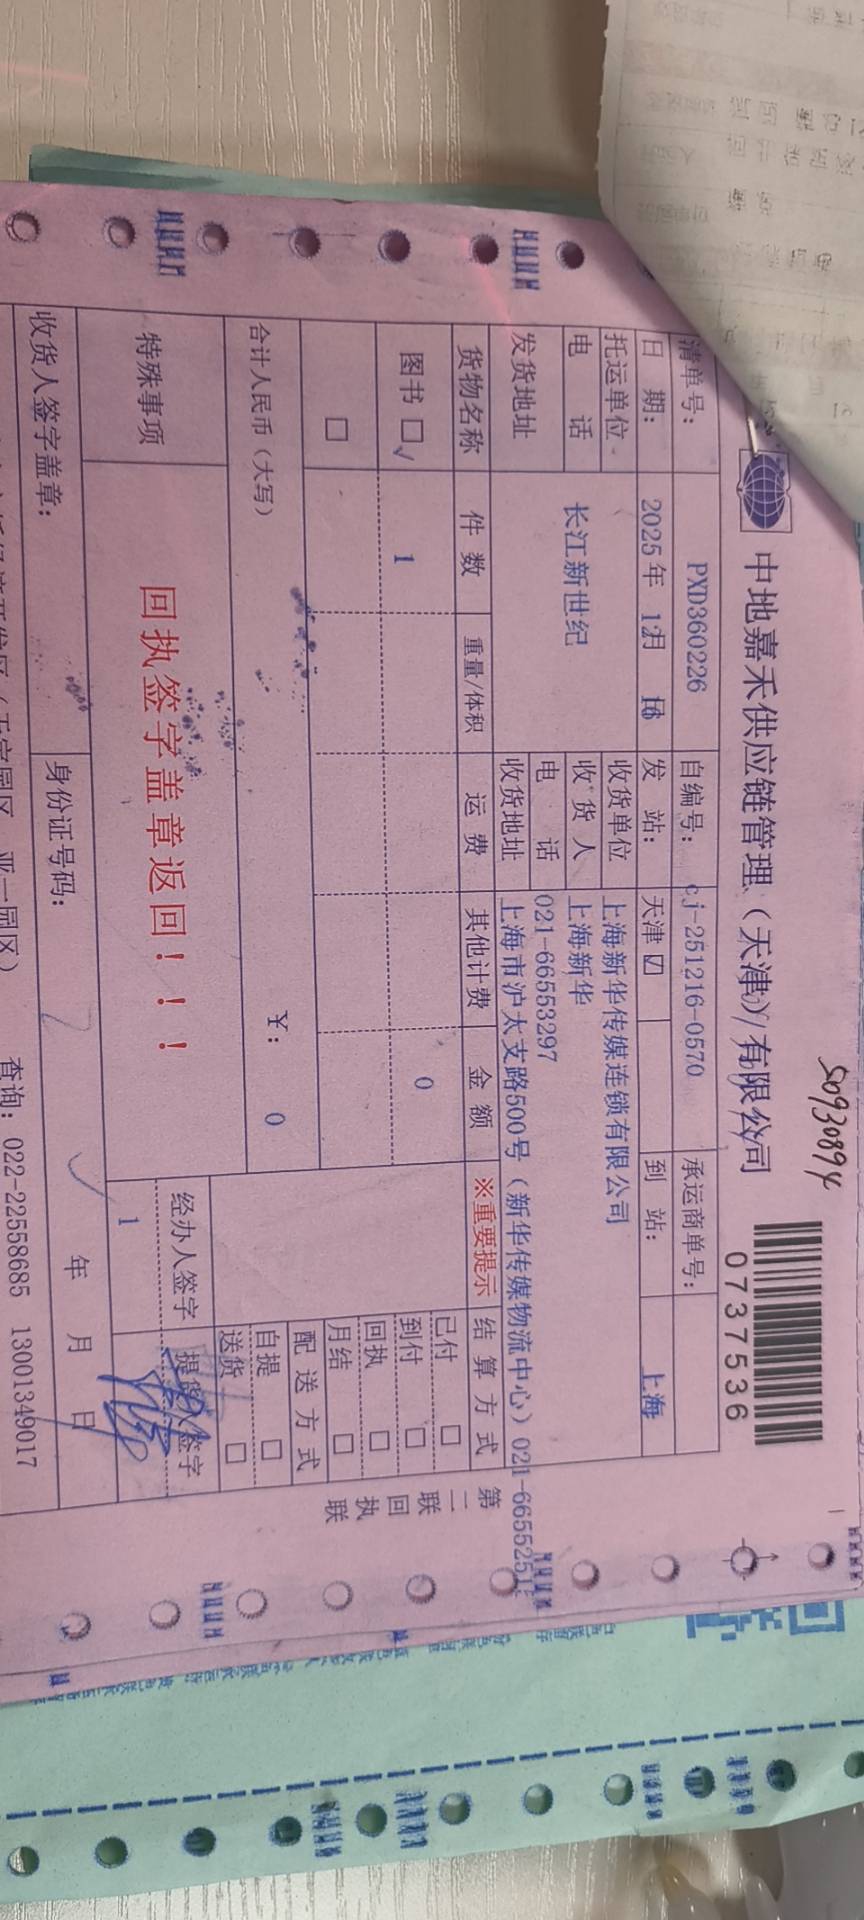 50930894
中地嘉禾供应链管理（天津）有限公司
0737536
清单号： PXD360226 自编号： cj-251216-0570 承运商单号：
日 期： 2025年 12月 发 站： 天津 ☑ 到 站： 上海
托运单位 长江新世纪 收货单位 上海新华传媒连锁有限公司
收货人 上海新华
电 话 电 话 021-66553297
发货地址 收货地址 上海市沪太支路500号（新华传媒物流中心）021-6655251
货物名称 件 数 重量/体积 运 费 其他计费 金 额 ※重要提示 结 算 方 式
图书 □ √ 1 0 已付 □
到付 □
□ 回执 □
月结 □
合计人民币（大写） ¥： 0 配 送 方 式
自提 □
送货 □
特殊事项 回执签字盖章返回！！！ 经办人签字 提货人签字
1
收货人签字盖章： 身份证号码： 年 月 日
查询：022-22558685 13001349017
第二联 回执联